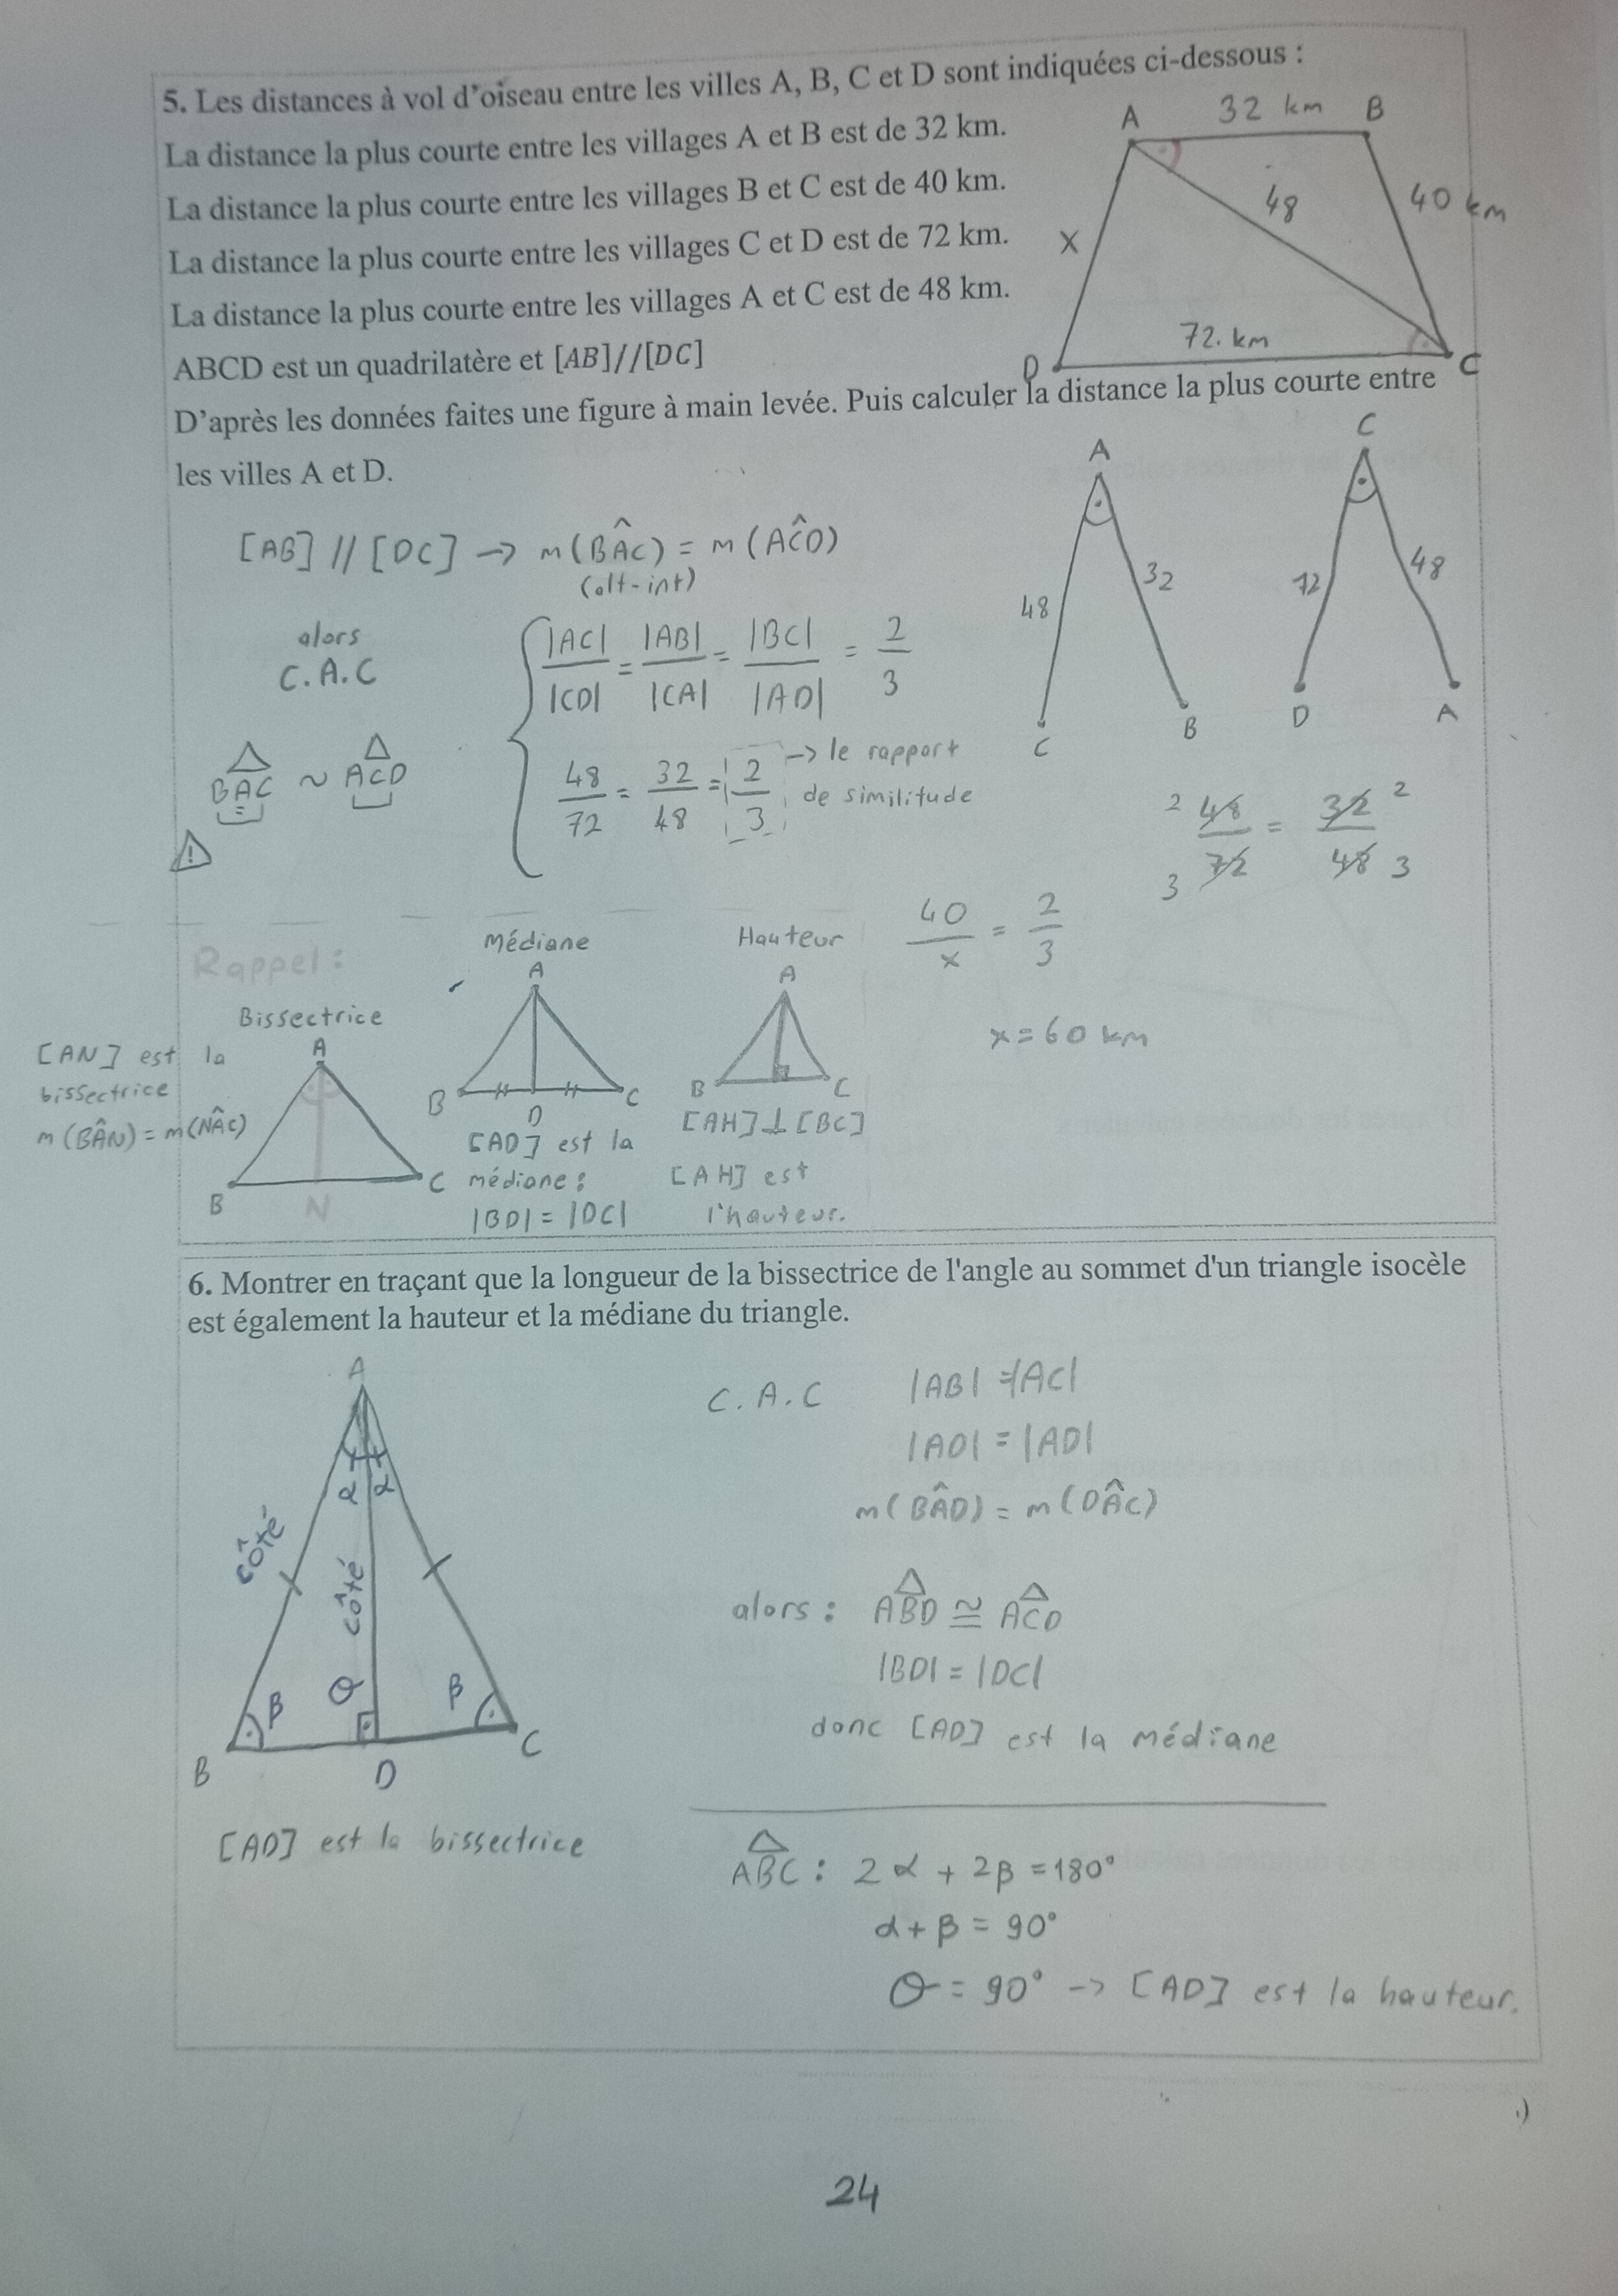 5. Les distances à vol d'oiseau entre les villes A, B, C et D sont indiquées ci-dessous :
La distance la plus courte entre les villages A et B est de 32 km.
La distance la plus courte entre les villages B et C est de 40 km.
La distance la plus courte entre les villages C et D est de 72 km.
La distance la plus courte entre les villages A et C est de 48 km.
ABCD est un quadrilatère et [AB]//[DC]
D'après les données faites une figure à main levée. Puis calculer la distance la plus courte entre
les villes A et D.
A 32 km B
48
40 km
x
72. km
D
C
[AB] // [DC] → m(BÂC) = m(AĈD)
(alt-int)
alors
C.A.C
|AC|/|CD| = |AB|/|CA| = |BC|/|AD| = 2/3
BAC ~ ACD
48/72 = 32/48 = 2/3 → le rapport
de similitude
A
48
32
C
B
C
72
48
D
A
2 48/72 3 = 32/48 2 3
40/x = 2/3
x = 60 km
Rappel :
Bissectrice
[AN] est la
bissectrice
m(BÂN) = m(NÂC)
A
B
N
C
Médiane
A
B
D
C
[AD] est la
médiane :
|BD| = |DC|
Hauteur
A
B
C
[AH] ⊥ [BC]
[AH] est
l'hauteur.
6. Montrer en traçant que la longueur de la bissectrice de l'angle au sommet d'un triangle isocèle
est également la hauteur et la médiane du triangle.
A
α α
côté
côté
β
θ
β
B
D
C
[AD] est la bissectrice
C.A.C
|AB| = |AC|
|AD| = |AD|
m(BÂD) = m(DÂC)
alors : ABD ≅ ACD
|BD| = |DC|
donc [AD] est la médiane
ABC : 2α + 2β = 180°
α + β = 90°
θ = 90° → [AD] est la hauteur.
24